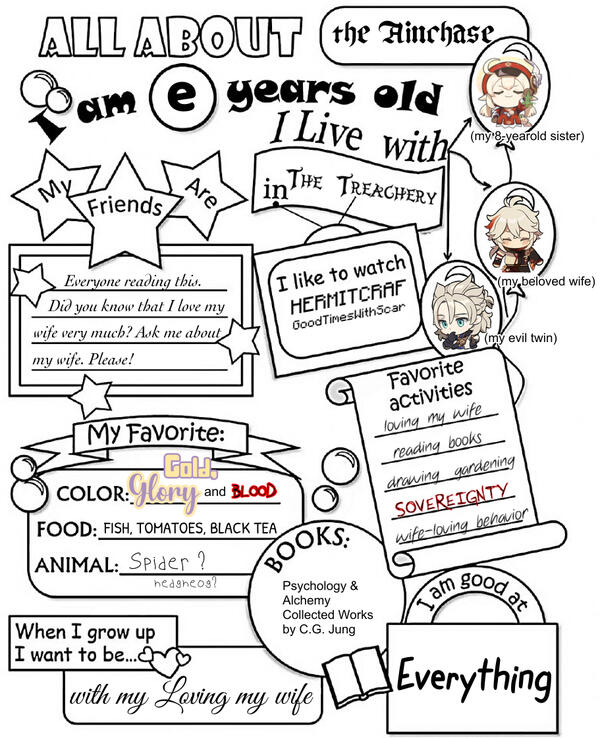 ALL ABOUT
the Ainchase
I am e years old
I Live with
(my 8-yearold sister)
(my beloved wife)
(my evil twin)
in THE TREACHERY
My Friends Are
Everyone reading this.
Did you know that I love my
wife very much? Ask me about
my wife. Please!
I like to watch
HERMITCRAF
GoodTimesWithScar
Favorite
activities
loving my wife
reading books
drawing gardening
SOVEREIGNTY
wife-loving behavior
My Favorite:
COLOR: Gold, Glory and BLOOD
FOOD: FISH, TOMATOES, BLACK TEA
ANIMAL: Spider?
hedgheog?
BOOKS:
Psychology &
Alchemy
Collected Works
by C.G. Jung
I am good at
Everything
When I grow up
I want to be...
with my Loving my wife